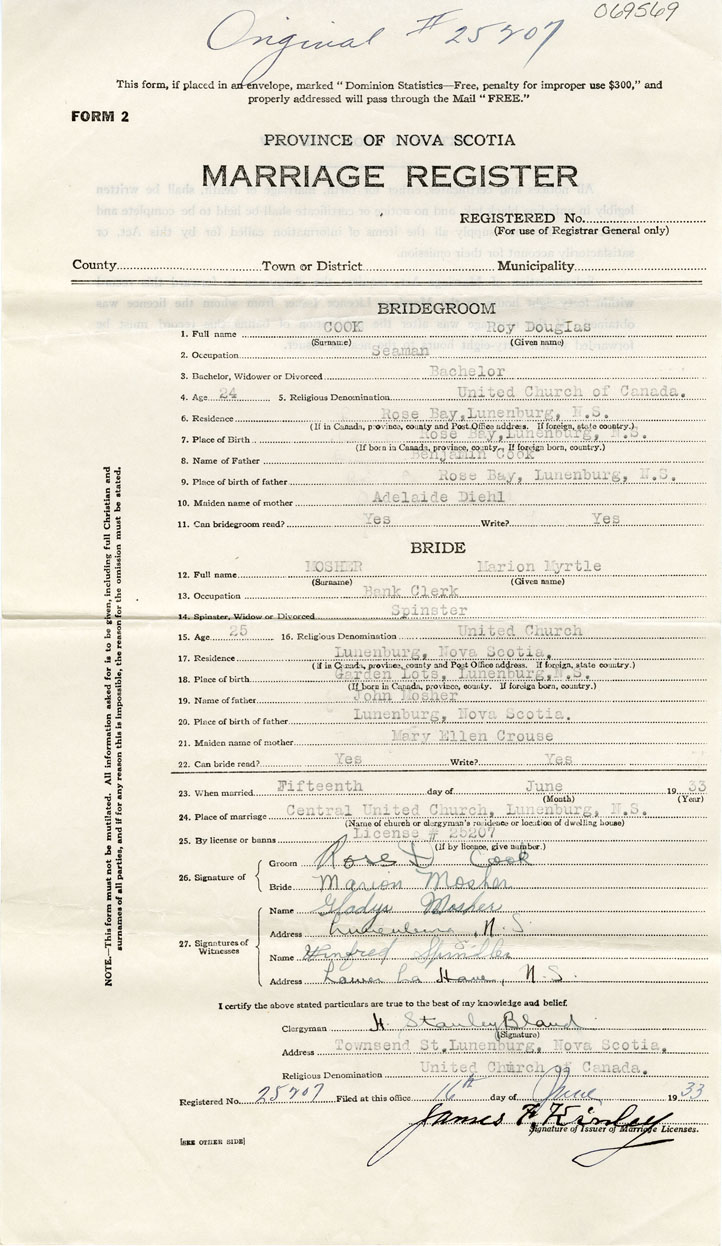 069569
Original # 25207
This form, if placed in an envelope, marked "Dominion Statistics—Free, penalty for improper use $300," and
properly addressed will pass through the Mail "FREE."
FORM 2
PROVINCE OF NOVA SCOTIA
MARRIAGE REGISTER
REGISTERED No.
(For use of Registrar General only)
County Town or District Municipality
BRIDEGROOM
1. Full name COOK Roy Douglas
(Surname) (Given name)
2. Occupation Seaman
3. Bachelor, Widower or Divorced Bachelor
4. Age 24 5. Religious Denomination United Church of Canada.
6. Residence Rose Bay, Lunenburg, N.S.
(If in Canada, province, county and Post Office address. If foreign, state country.)
7. Place of Birth Rose Bay, Lunenburg, N.S.
(If born in Canada, province, county. If foreign born, country.)
8. Name of Father Benjamin Cook
9. Place of birth of father Rose Bay, Lunenburg, N.S.
10. Maiden name of mother Adelaide Diehl
11. Can bridegroom read? Yes Write? Yes
BRIDE
12. Full name MOSHER Marion Myrtle
(Surname) (Given name)
13. Occupation Bank Clerk
14. Spinster, Widow or Divorced Spinster
15. Age 25 16. Religious Denomination United Church
17. Residence Lunenburg, Nova Scotia.
(if in Canada, province, county and Post Office address. If foreign, state country.)
18. Place of birth Garden Lots, Lunenburg, N.S.
(If born in Canada, province, county. If foreign born, country.)
19. Name of father John Mosher
20. Place of birth of father Lunenburg, Nova Scotia.
21. Maiden name of mother Mary Ellen Crouse
22. Can bride read? Yes Write? Yes
23. When married Fifteenth day of June 1933
(Month) (Year)
24. Place of marriage Central United Church, Lunenburg, N.S.
(Name of church or clergyman's residence or location of dwelling house)
25. By license or banns License # 25207
(if by licence, give number.)
26. Signature of Groom Rose D Cook
Bride Marion Mosher
27. Signatures of Witnesses Name Gladys Mosher
Address Lunenburg, N.S.
Name Winfred Spindler
Address Lower La Have, N.S.
NOTE.—This form must not be mutilated. All information asked for is to be given, including full Christian and
surnames of all parties, and if for any reason this is impossible, the reason for the omission must be stated.
I certify the above stated particulars are true to the best of my knowledge and belief.
Clergyman H. Stanley Bland
(Signature)
Address Townsend St. Lunenburg, Nova Scotia.
Religious Denomination United Church of Canada.
Registered No. 25207 Filed at this office 16th day of June 1933
James F. Kinley
Signature of Issuer of Marriage Licenses.
[SEE OTHER SIDE]